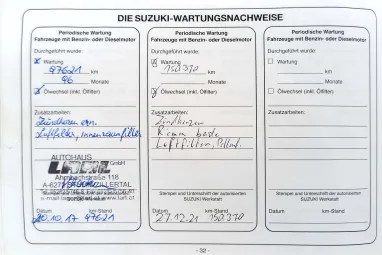 DIE SUZUKI-WARTUNGSNACHWEISE
Periodische Wartung
Fahrzeuge mit Benzin- oder Dieselmotor
Durchgeführt wurde:
Wartung
97621 km
96 Monate
Ölwechsel (inkl. Ölfilter)
Zusatzarbeiten:
Zündkerzen ern.
Luftfilter, Innenraumfilter
AUTOHAUS
GmbH
Ahrnbachstraße 118
Datum km-Stand
20.10.17 97621
Periodische Wartung
Fahrzeuge mit Benzin- oder Dieselmotor
Durchgeführt wurde:
Wartung
150370 km
Monate
Ölwechsel (inkl. Ölfilter)
Zusatzarbeiten:
Zündkerzen
Riemen beide
Luftfilter, Pollenf.
Stempel und Unterschrift der autorisierten
SUZUKI Werkstatt
Datum km-Stand
27.12.21 150370
Periodische Wartung
Fahrzeuge mit Benzin- oder Dieselmotor
Durchgeführt wurde:
Wartung
km
Monate
Ölwechsel (inkl. Ölfilter)
Zusatzarbeiten:
Stempel und Unterschrift der autorisierten
SUZUKI Werkstatt
Datum km-Stand
- 32 -